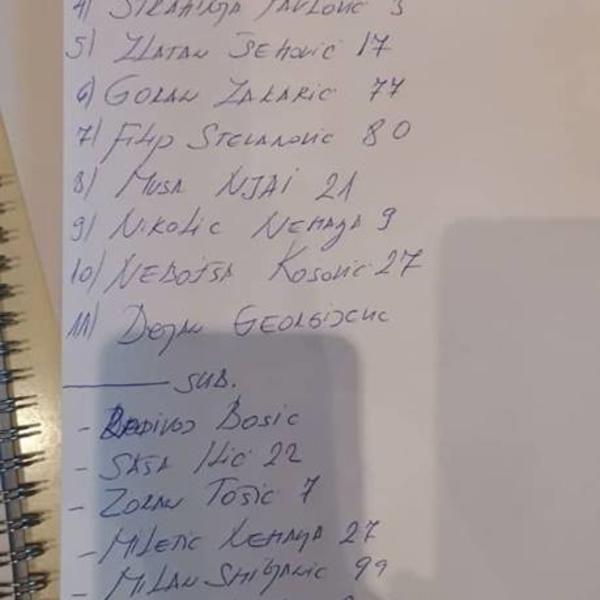 4) STRAHINJA PAVLOVIC 3
5) ZLATAN ŠEHOVIC 17
6) GORAN ZAKARIC 77
7) Filip STEVANOVIC 80
8) MUSA NJAI 21
9) NIKOLIC NEMANJA 9
10) NEBOJSA KOSOVIC 27
11) DEJAN GEORGIJEVIC
SUB.
- RADIVOJ BOSIC
- SASA ILIC 22
- ZORAN TOSIC 7
- MILETIC NEMANJA 27
- MILAN SMILJANIC 99